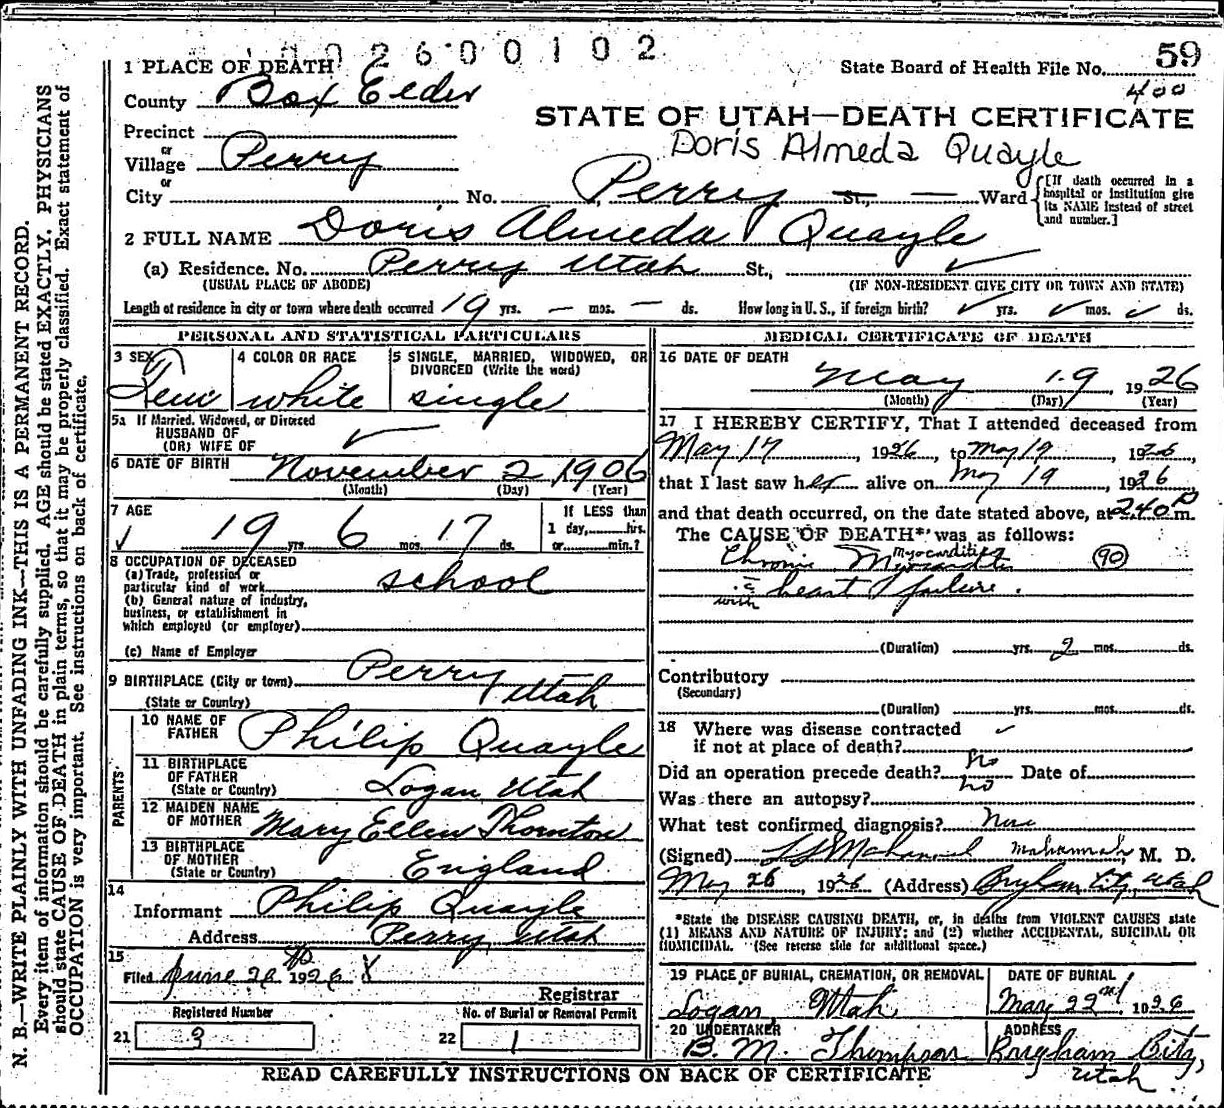 102600102
59
State Board of Health File No.
400
1 PLACE OF DEATH
County Box Elder
STATE OF UTAH—DEATH CERTIFICATE
Doris Almeda Quayle
Precinct
or
Village Perry
or
City No. Perry St., Ward
[If death occurred in a
hospital or institution give
its NAME instead of street
and number.]
2 FULL NAME Doris Almeda Quayle
(a) Residence. No. Perry Utah St.,
(USUAL PLACE OF ABODE) (IF NON-RESIDENT GIVE CITY OR TOWN AND STATE)
Length of residence in city or town where death occurred 19 yrs. — mos. — ds. How long in U. S., if foreign birth? ✓ yrs. ✓ mos. ✓ ds.
PERSONAL AND STATISTICAL PARTICULARS
3 SEX Fem
4 COLOR OR RACE white
5 SINGLE, MARRIED, WIDOWED, OR
DIVORCED (Write the word)
single
5a If Married, Widowed, or Divorced
HUSBAND OF
(OR) WIFE OF ✓
6 DATE OF BIRTH November 2, 1906
(Month) (Day) (Year)
7 AGE
✓ 19 yrs. 6 mos. 17 ds.
If LESS than
1 day, hrs.
or min.?
8 OCCUPATION OF DECEASED
(a) Trade, profession or
particular kind of work school
(b) General nature of industry,
business, or establishment in
which employed (or employer)
(c) Name of Employer
9 BIRTHPLACE (City or town) Perry
(State or Country) Utah
PARENTS
10 NAME OF
FATHER Philip Quayle
11 BIRTHPLACE
OF FATHER
(State or Country) Logan, Utah
12 MAIDEN NAME
OF MOTHER Mary Ellen Thornton
13 BIRTHPLACE
OF MOTHER
(State or Country) England
14
Informant Philip Quayle
Address Perry, Utah
15
Filed June 1926
Registrar
Registered Number
21 3
No. of Burial or Removal Permit
22 1
MEDICAL CERTIFICATE OF DEATH
16 DATE OF DEATH
May 19 1926
(Month) (Day) (Year)
17 I HEREBY CERTIFY, That I attended deceased from
May 17, 1926, to May 19, 1926,
that I last saw her alive on May 19, 1926
and that death occurred, on the date stated above, at 240 P m.
The CAUSE OF DEATH* was as follows:
Chronic Myocarditis Myocarditis 90
c with heart failure.
(Duration) yrs. 2 mos. ds.
Contributory
(Secondary)
(Duration) yrs. mos. ds.
18 Where was disease contracted
if not at place of death? ✓
Did an operation precede death? no Date of
Was there an autopsy? no
What test confirmed diagnosis?
(Signed) M. D.
May 26, 1926 (Address) Brigham City, Utah
*State the DISEASE CAUSING DEATH, or, in deaths from VIOLENT CAUSES state
(1) MEANS AND NATURE OF INJURY; and (2) whether ACCIDENTAL, SUICIDAL OR
HOMICIDAL. (See reverse side for additional space.)
19 PLACE OF BURIAL, CREMATION, OR REMOVAL
Logan, Utah
DATE OF BURIAL
May 22nd, 1926
20 UNDERTAKER
B. M. Thompson
ADDRESS
Brigham City,
Utah
READ CAREFULLY INSTRUCTIONS ON BACK OF CERTIFICATE
N. B.—WRITE PLAINLY WITH UNFADING INK—THIS IS A PERMANENT RECORD.
Every item of information should be carefully supplied. AGE should be stated EXACTLY. PHYSICIANS
should state CAUSE OF DEATH in plain terms, so that it may be properly classified. Exact statement of
OCCUPATION is very important. See instructions on back of certificate.